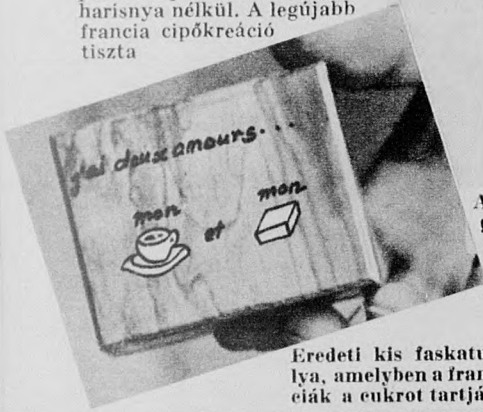 harisnya nélkül. A legújabb
francia cipőkreáció
tiszta
j'ai deux amours...
mon et mon
Eredeti kis faskatu
lya, amelyben a fran
ciák a cukrot tartjá